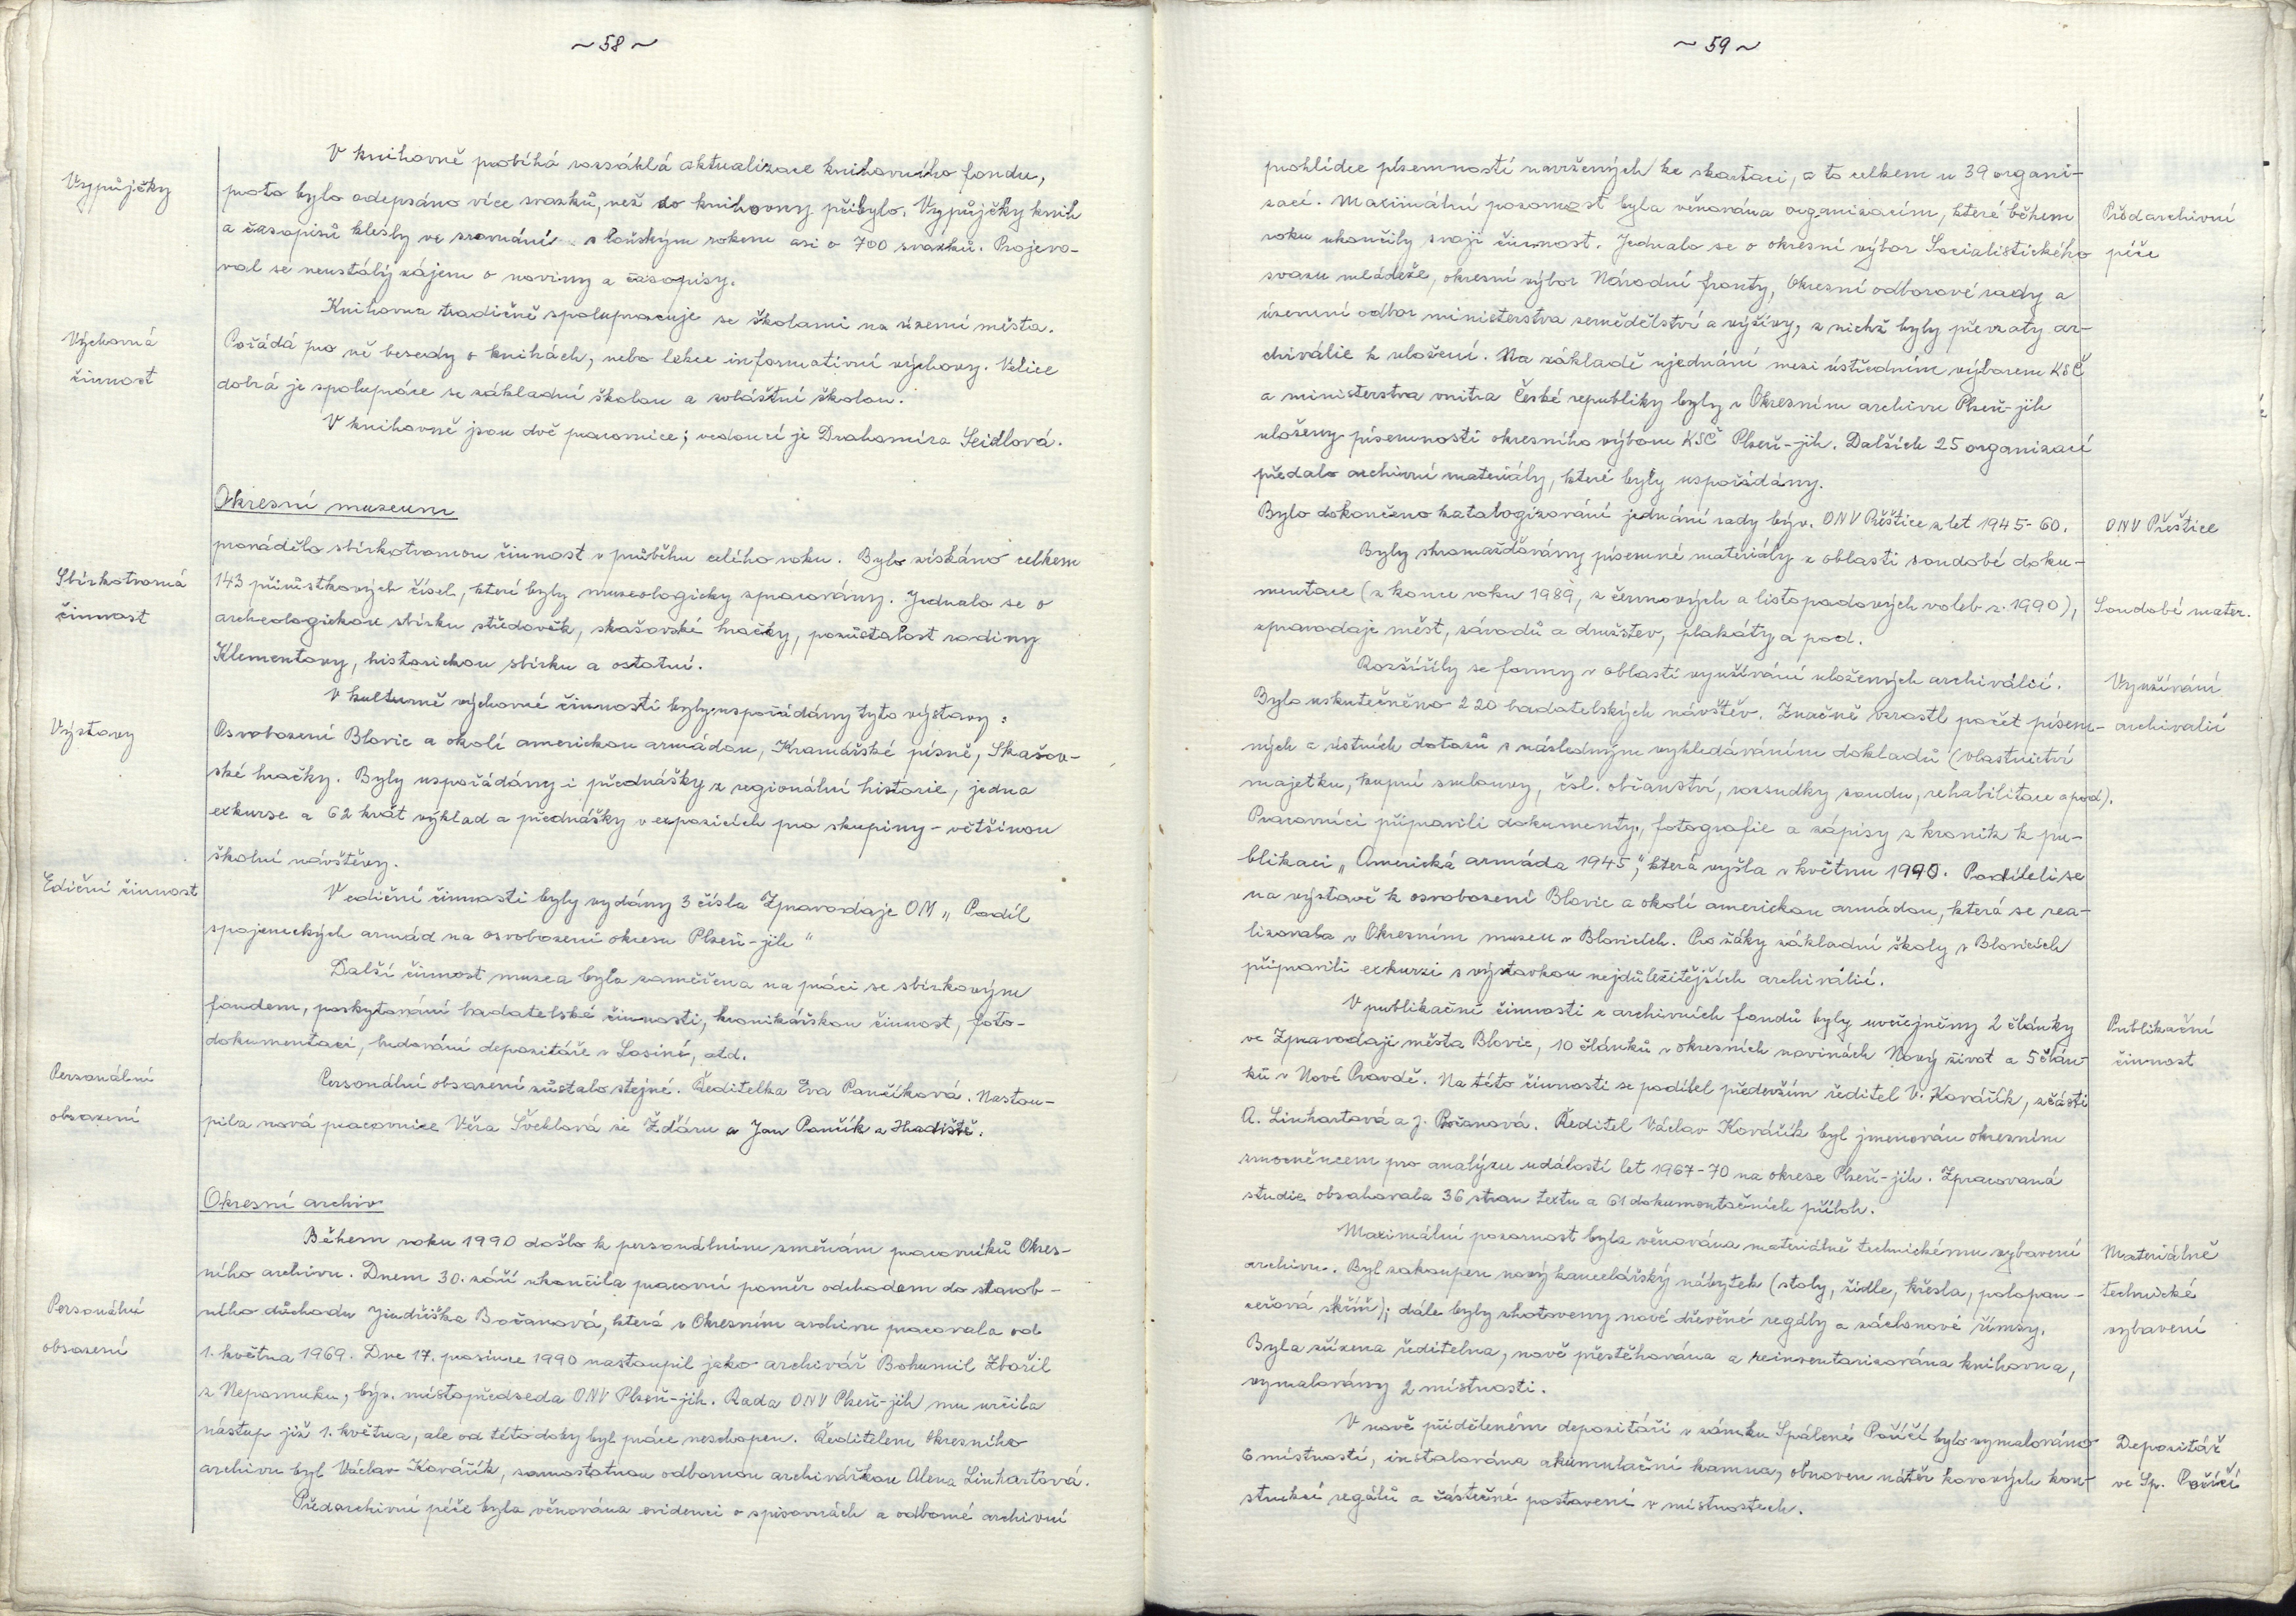 ~ 58 ~
V knihovně probíhá rozsáhlá aktualizace knihovního fondu,
Výpůjčky
proto bylo odepsáno více svazků, než do knihovny přibylo. Výpůjčky knih
a časopisů klesly ve srovnání s loňským rokem asi o 700 svazků. Projevo-
val se neustálý zájem o noviny a časopisy.
Knihovna tradičně spolupracuje se školami na území města.
Výchovná
činnost
Pořádá pro ně besedy o knihách, nebo lekce informativní výchovy. Velice
dobrá je spolupráce se základní školou a zvláštní školou.
V knihovně jsou dvě pracovnice; vedoucí je Drahomíra Seidlová.
Okresní muzeum
provádělo sbírkotvornou činnost v průběhu celého roku. Bylo získáno celkem
Sbírkotvorná
činnost
143 přírůstkových čísel, které byly muzeologicky zpracovány. Jednalo se o
archeologickou sbírku středověk, skašovské hračky, pozůstalost rodiny
Klementovy, historickou sbírku a ostatní.
V kulturně výchovné činnosti byly uspořádány tyto výstavy:
Výstavy
Osvobození Blovic a okolí americkou armádou, Kramářské písně, Skašov-
ské hračky. Byly uspořádány i přednášky z regionální historie, jedna
exkurse a 62 krát výklad a přednášky v expozicích pro skupiny - většinou
školní návštěvy.
Ediční činnost
V ediční činnosti byly vydány 3 čísla Zpravodaje OM „Podíl
spojeneckých armád na osvobození okresu Plzeň-jih"
Další činnost muzea byla zaměřena na práci se sbírkovým
fondem, poskytování badatelské činnosti, kronikářskou činnost, foto-
dokumentaci, budování depozitáře v Losiné, atd.
Personální
obsazení
Personální obsazení zůstalo stejné. Ředitelka Eva Pančíková. Nastou-
pila nová pracovnice Věra Šveklová ze Žďáru a Jan Pančík z Hradiště.
Okresní archiv
Během roku 1990 došlo k personálním změnám pracovníků Okres-
ního archivu. Dnem 30. září ukončila pracovní poměr odchodem do starob-
Personální
obsazení
ního důchodu Jindřiška Bočanová, která v Okresním archivu pracovala od
1. května 1969. Dne 17. prosince 1990 nastoupil jako archivář Bohumil Zbořil
z Nepomuku, býv. místopředseda ONV Plzeň-jih. Rada ONV Plzeň-jih mu určila
nástup již 1. května, ale od této doby byl práce neschopen. Ředitelem Okresního
archivu byl Václav Kovářík, samostatnou odbornou archivářkou Alena Linhartová.
Předarchivní péče byla věnována evidenci o spisovnách a odborné archivní
~ 59 ~
prohlídce písemností navržených ke skartaci, a to celkem u 39 organi-
zací. Maximální pozornost byla věnována organizacím, které během
Předarchivní
péče
roku ukončily svoji činnost. Jednalo se o okresní výbor Socialistického
svazu mládeže, okresní výbor Národní fronty, Okresní odborové rady a
územní odbor ministerstva zemědělství a výživy, z nichž byly převzaty ar-
chiválie k uložení. Na základě ujednání mezi ústředním výborem KSČ
a ministerstva vnitra České republiky byly v Okresním archivu Plzeň-jih
uloženy písemnosti okresního výboru KSČ Plzeň-jih. Dalších 25 organizací
předalo archivní materiály, které byly uspořádány.
Bylo dokončeno katalogizování jednání rady býv. ONV Přeštice z let 1945-60.
ONV Přeštice
Byly shromažďovány písemné materiály z oblasti soudobé doku-
mentace (z konce roku 1989, z červnových a listopadových voleb r. 1990),
Soudobé mater.
zpravodaje měst, závodů a družstev, plakáty a pod.
Rozšířily se formy v oblasti využívání uložených archiválií.
Využívání
archivalií
Bylo uskutečněno 220 badatelských návštěv. Značně vzrostl počet písem-
ných a ústních dotazů s následným vyhledáváním dokladů (vlastnictví
majetku, kupní smlouvy, čsl. občanství, rozsudky soudu, rehabilitace apod).
Pracovníci připravili dokumenty, fotografie a zápisy z kronik k pu-
blikaci „Americká armáda 1945", která vyšla v květnu 1990. Podíleli se
na výstavě k osvobození Blovic a okolí americkou armádou, která se rea-
lizovala v Okresním muzeu v Blovicích. Pro žáky základní školy v Blovicích
připravili exkurzi s výstavkou nejdůležitějších archiválií.
V publikační činnosti z archivních fondů byly uveřejněny 2 články
Publikační
činnost
ve Zpravodaji města Blovic, 10 článků v okresních novinách Nový život a 5 člán-
ků v Nové Pravdě. Na této činnosti se podílel především ředitel V. Kovářík, zčásti
A. Linhartová a J. Bočanová. Ředitel Václav Kovářík byl jmenován okresním
zmocněncem pro analýzu událostí let 1967-70 na okrese Plzeň-jih. Zpracovaná
studie obsahovala 36 stran textu a 61 dokumentačních příloh.
Maximální pozornost byla věnována materiálně technickému vybavení
Materiálně
technické
vybavení
archivu. Byl zakoupen nový kancelářský nábytek (stoly, židle, křesla, polopan-
ceřová skříň); dále byly zhotoveny nové dřevěné regály a záclonové římsy.
Byla zřízena ředitelna, nově přestěhována a reinventarizována knihovna,
vymalovány 2 místnosti.
V nově přiděleném depozitáři v zámku Spálené Poříčí bylo vymalováno
Depozitář
ve Sp. Poříčí
6 místností, instalována akumulační kamna, obnoven nátěr kovových kon-
strukcí regálů a částečné postavení v místnostech.